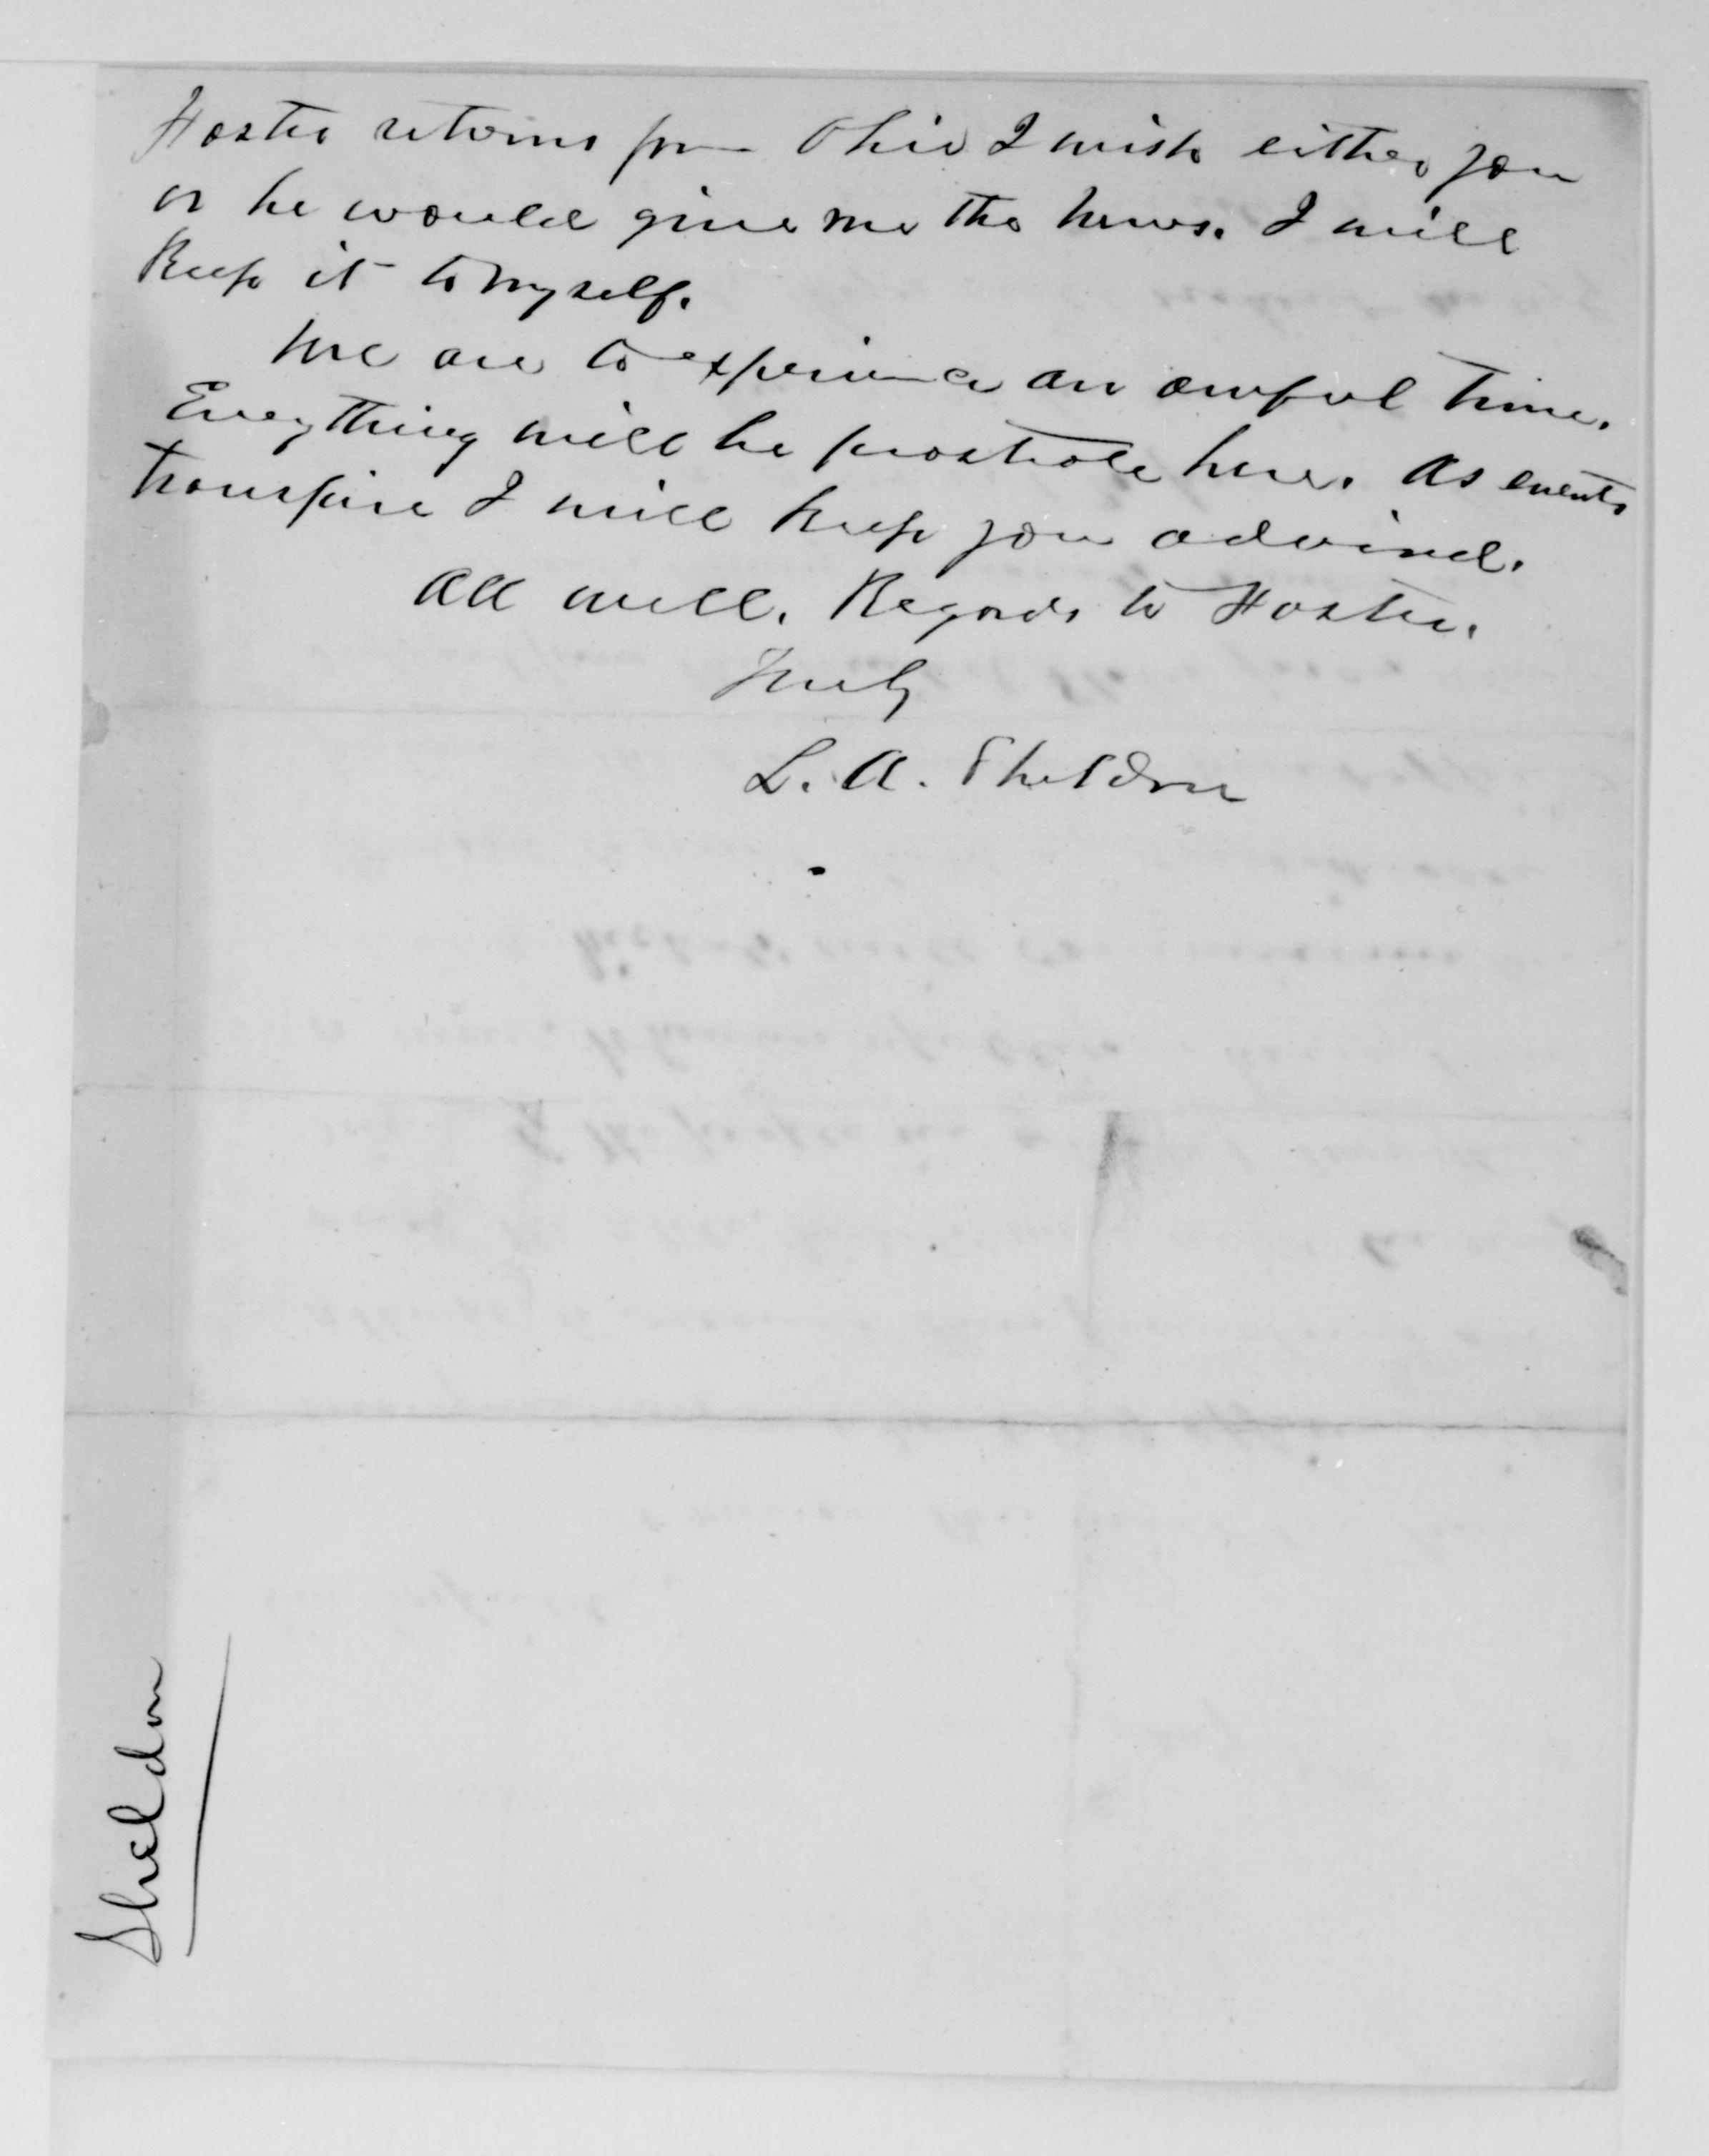 Foster returns from Ohio I wish either you
or he would give me the news. I will
Keep it to myself.
We are to experience an awful time.
Everything will be prostrate here. As events
transpire I will keep you advised.
All well. Regards to Foster.
Truly
L. A. Sheldon
Sheldon